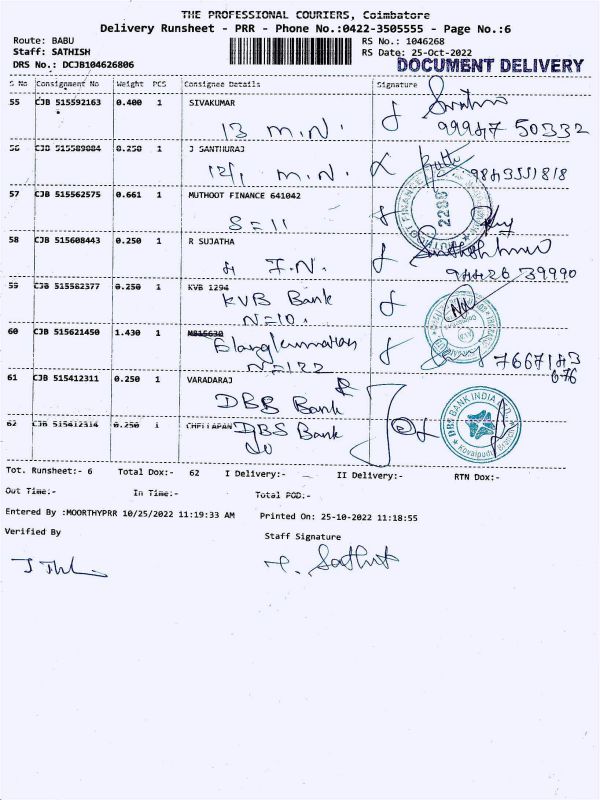 THE PROFESSIONAL COURIERS, Coimbatore
Delivery Runsheet - PRR - Phone No.:0422-3505555 - Page No.:6
Route: BABU
RS No.: 1046268
Staff: SATHISH
RS Date: 25-Oct-2022
DRS No.: DCJB104626806
DOCUMENT DELIVERY
S No Consignment No Weight PCS Consignee Details Signature
55 CJB 515592163 0.400 1 SIVAKUMAR
13 M.N. 99947 50332
56 CJB 515589084 0.250 1 J SANTHURAJ
12/1 M.N. 9843551818
57 CJB 515562575 0.661 1 MUTHOOT FINANCE 641042
S = 11
58 CJB 515608443 0.250 1 R SUJATHA
I.N. 94426 39990
59 CJB 515582377 0.250 1 KVB 1294
KVB Bank
N=10.
60 CJB 515621450 1.430 1
N=122
61 CJB 515412311 0.250 1 VARADARAJ
DBB Bank
62 CJB 515412314 0.250 1 CHELLAPAN DBS Bank
DBS BANK INDIA LTD.
Kovaipudur Branch
Tot. Runsheet:- 6 Total Dox:- 62 I Delivery:- II Delivery:- RTN Dox:-
Out Time:- In Time:- Total POD:-
Entered By :MOORTHYPRR 10/25/2022 11:19:33 AM Printed On: 25-10-2022 11:18:55
Verified By Staff Signature